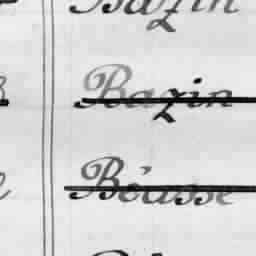 Bazin
Bazin
Béasse